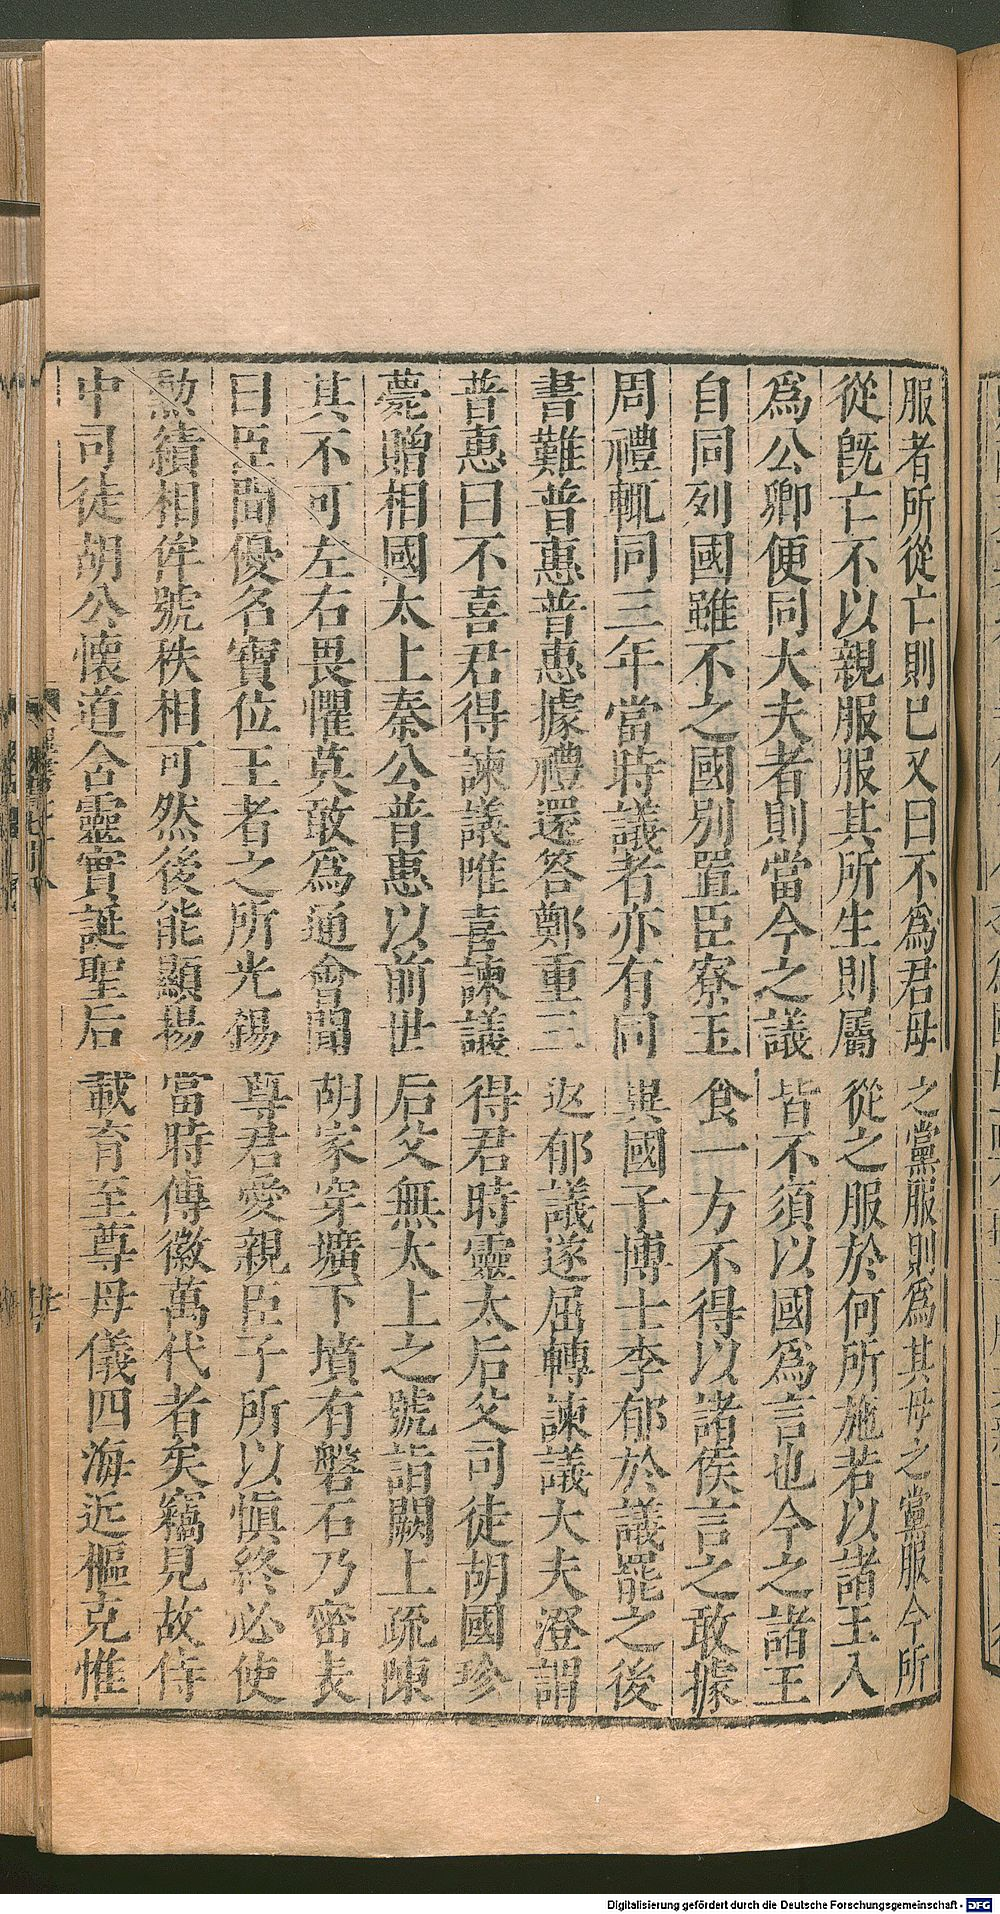 服者所從亡則已又曰不爲君母之黨服則爲其母之黨服今所
從旣亡不以親服服其所生則屬從之服於何所施若以諸王入
爲公卿便同大夫者則當今之議皆不須以國爲言也今之諸王
自同列國雖不之國別置臣寮玉食一方不得以諸侯言之敢據
周禮輒同三年當時議者亦有同異國子博士李郁於議罷之後
書難普惠普惠據禮還答鄭重三返郁議遂屈轉諫議大夫澄謂
普惠曰不喜君得諫議唯喜諫議得君時靈太后父司徒胡國珍
薨贈相國太上秦公普惠以前世后父無太上之號詣闕上疏陳
其不可左右畏懼莫敢爲通會聞胡家穿壙下墳有磐石乃密表
曰臣聞優名寶位王者之所光錫尊君愛親臣子所以愼終必使
勲績相侔號秩相可然後能顯揚當時傳徽萬代者矣竊見故侍
中司徒胡公懷道含靈實誕聖后載育至尊母儀四海近樞克惟
Digitalisierung gefördert durch die Deutsche Forschungsgemeinschaft - DFG